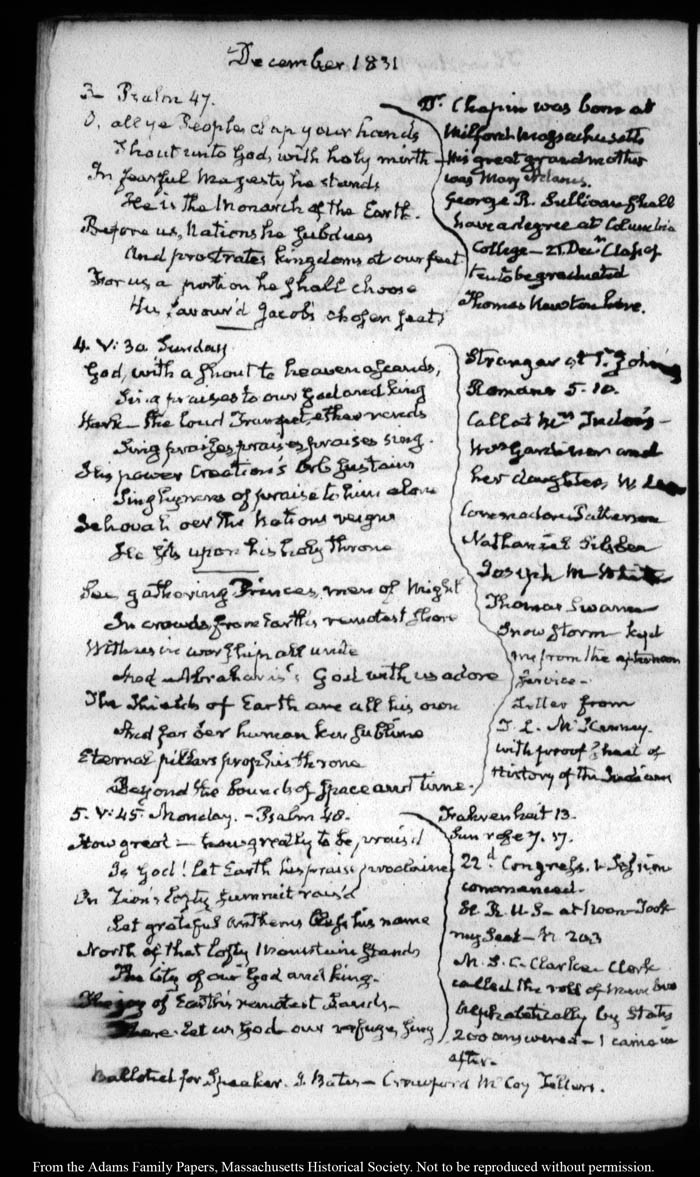 December 1831
3 Psalm 47.
O, all ye People, clap your hands
Shout unto God, with holy mirth –
In fearful Majesty he stands
He is the Monarch of the Earth.
Before us, Nations he subdues
And prostrates kingdoms at our feet
For us a portion he shall choose
His favour'd Jacob's chosen seat
Dr. Chapin was born at
Milford Massachusetts
His great grandmother
was Mary Adams.
George R. Sullivan shall
have a degree at Columbia
College – 21. Decr. Class of
ten to be graduated
Thomas Newton here.
4. V: 30 Sunday
God, with a shout to heaven ascends,
Sing praises to our God and king
Hark – the loud Trumpet, ether rends
Sing praises praises praises sing.
His power Creation's Orb sustains
Sing hymns of praise to him alone
Jehovah oer the Nations reigns
He sits upon his holy throne
See gathering Princes, men of Might
In crowds, from Earth's remotest shore
With us in worship all unite
And Abraham's God with us adore
The Shields of Earth are all his own
And far oer human ken sublime
Eternal pillars prop his throne
Beyond the bounds of space and time.
Stranger at St. John's
Romans 5. 10.
Call at Mrs
Mrs Gardiner and
her daughter,
Commodore Patterson
Nathaniel Silsbee
Joseph M White
Thomas Swann
Snow storm kept
me from the afternoon
service –
Letter from
T. L. McKenney.
with proof sheet of
History of the Indians
5. V: 45. Monday. – Psalm 48.
How great – how greatly to be prais'd
Is God! let Earth his praise proclaim
On Zion's lofty summit rais'd
Let grateful anthems bless his name
North of that lofty Mountain stands
The City of our God and king.
The joy of Earth's remotest Lands –
There let us God our refuge sing
Fahrenheit 13.
Sun rose 7. 17.
22d. Congress. 1 Session
commenced.
H. R. U.S – at Noon – Took
my Seat – N. 203
M. S. C. Clarke – Clerk
called the roll of members
alphabetically by States
200 answered – I came in
after.
Balloted for Speaker. I. Bates – Crawford McCoy Tellers.
From the Adams Family Papers, Massachusetts Historical Society. Not to be reproduced without permission.